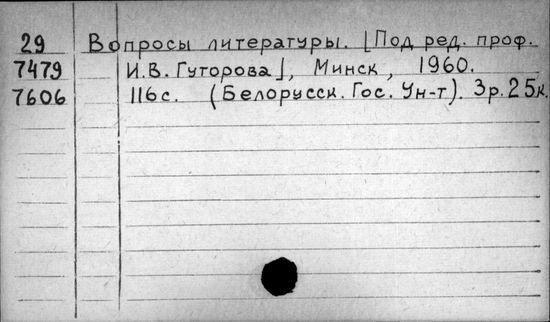 29 Вопросы литературы. [Под ред. проф.
7479 И.В. Гуторова], Минск, 1960.
7606 116с. (Белорусск. Гос. Ун-т). 3р. 25к.